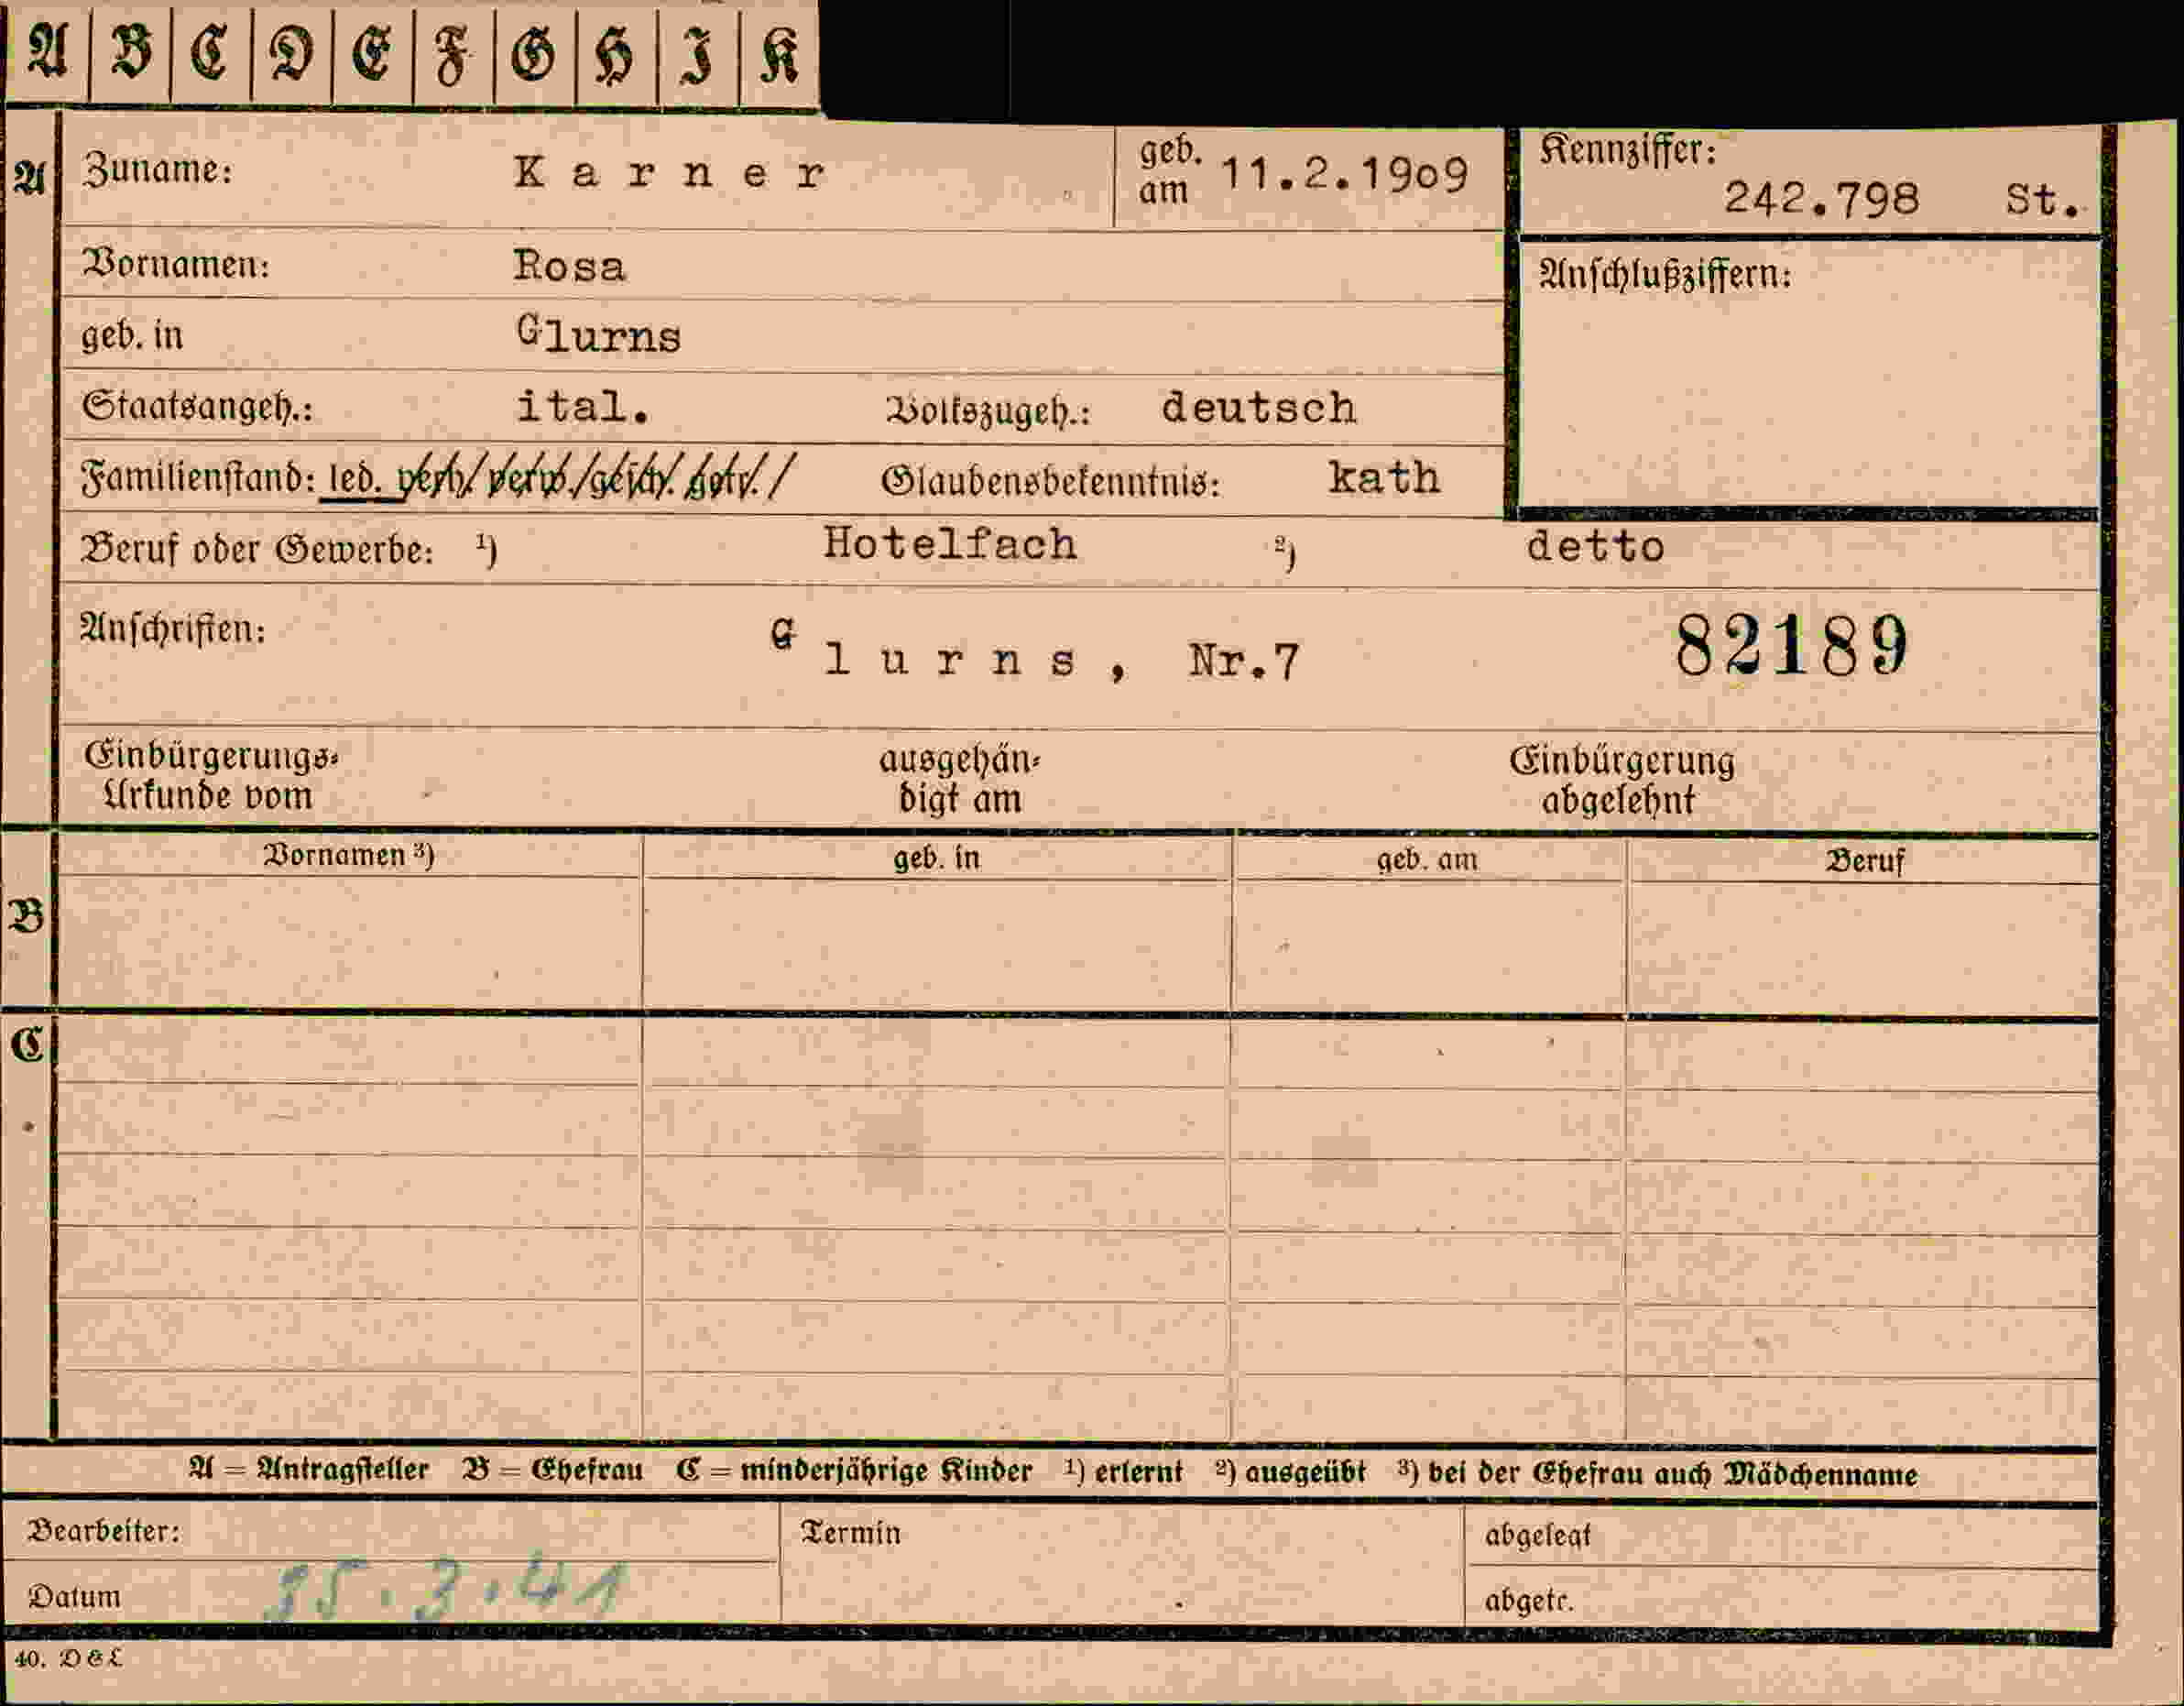 A B C D E F G H I K
A Zuname: Karner geb. am 11.2.1909 Kennziffer: 242.798 St.
Vornamen: Rosa Anschlußziffern:
geb. in Glurns
Staatsangeh.: ital. Volkszugeh.: deutsch
Familienstand: led. verh./verw./gesch./getr./ Glaubensbekenntnis: kath
Beruf oder Gewerbe: ¹) Hotelfach ²) detto
Anschriften: Glurns, Nr.7 82189
Einbürgerungs- ausgehän- Einbürgerung
Urkunde vom digt am abgelehnt
Vornamen ³) geb. in geb. am Beruf
B
C
A = Antragsteller B = Ehefrau C = minderjährige Kinder ¹) erlernt ²) ausgeübt ³) bei der Ehefrau auch Mädchenname
Bearbeiter: Termin abgelegt
Datum .3.41 abgetr.
40. D &